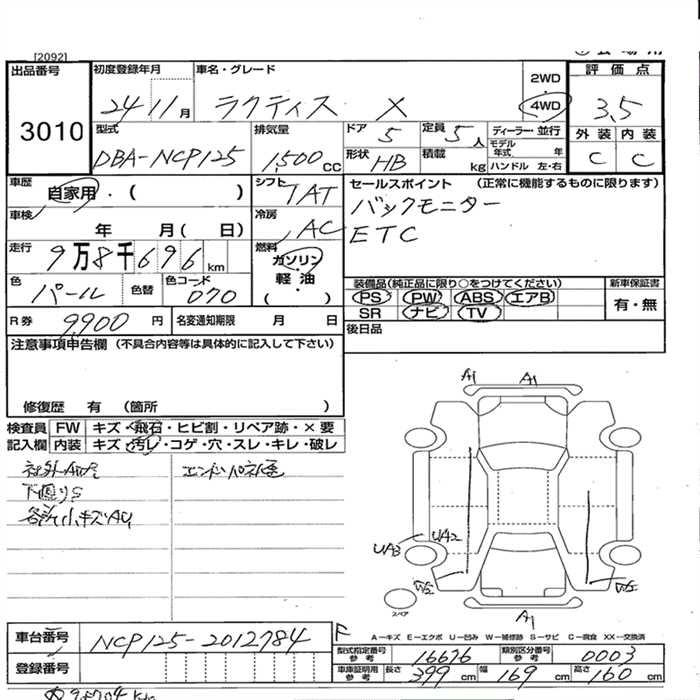 [2092]
出品番号 3010
初度登録年月 24 11月
車名・グレード ラクティス X
2WD
4WD
評価点 3.5
外装 内装
C C
型式 DBA-NCP125
排気量 1,500cc
ドア 5
定員 5人
ディーラー・並行
モデル年式 年
形状 HB
積載 kg
ハンドル 左・右
車歴 自家用・( )
シフト 7AT
車検 年 月( 日)
冷房 AC
走行 9万8千696km
燃料 ガソリン・軽油・( )
色 パール
色替
色コード 070
R券 9,900円
名変通知期限 月 日
セールスポイント (正常に機能するものに限ります)
バックモニター
ETC
装備品(純正品に限り○をつけてください)
PS PW ABS エアB
SR ナビ TV
新車保証書
有・無
後日品
注意事項申告欄 (不具合内容等は具体的に記入して下さい)
修復歴 有 (箇所 )
検査員記入欄
FW キズ・飛石・ヒビ割・リペア跡・×要
内装 キズ・汚レ・コゲ・穴・スレ・キレ・破レ
下廻りS
各所小キズA1
A1 A1
UA3 UA2
A1
スペア
F
A-キズ E-エクボ U-凹み W-補修跡 S-サビ C-腐食 XX-交換済
車台番号 NCP125-2012784
登録番号
型式指定番号 参考 16676
類別区分番号 参考 0003
車庫証明用 参考 長さ 399 cm 幅 169 cm 高さ 160 cm